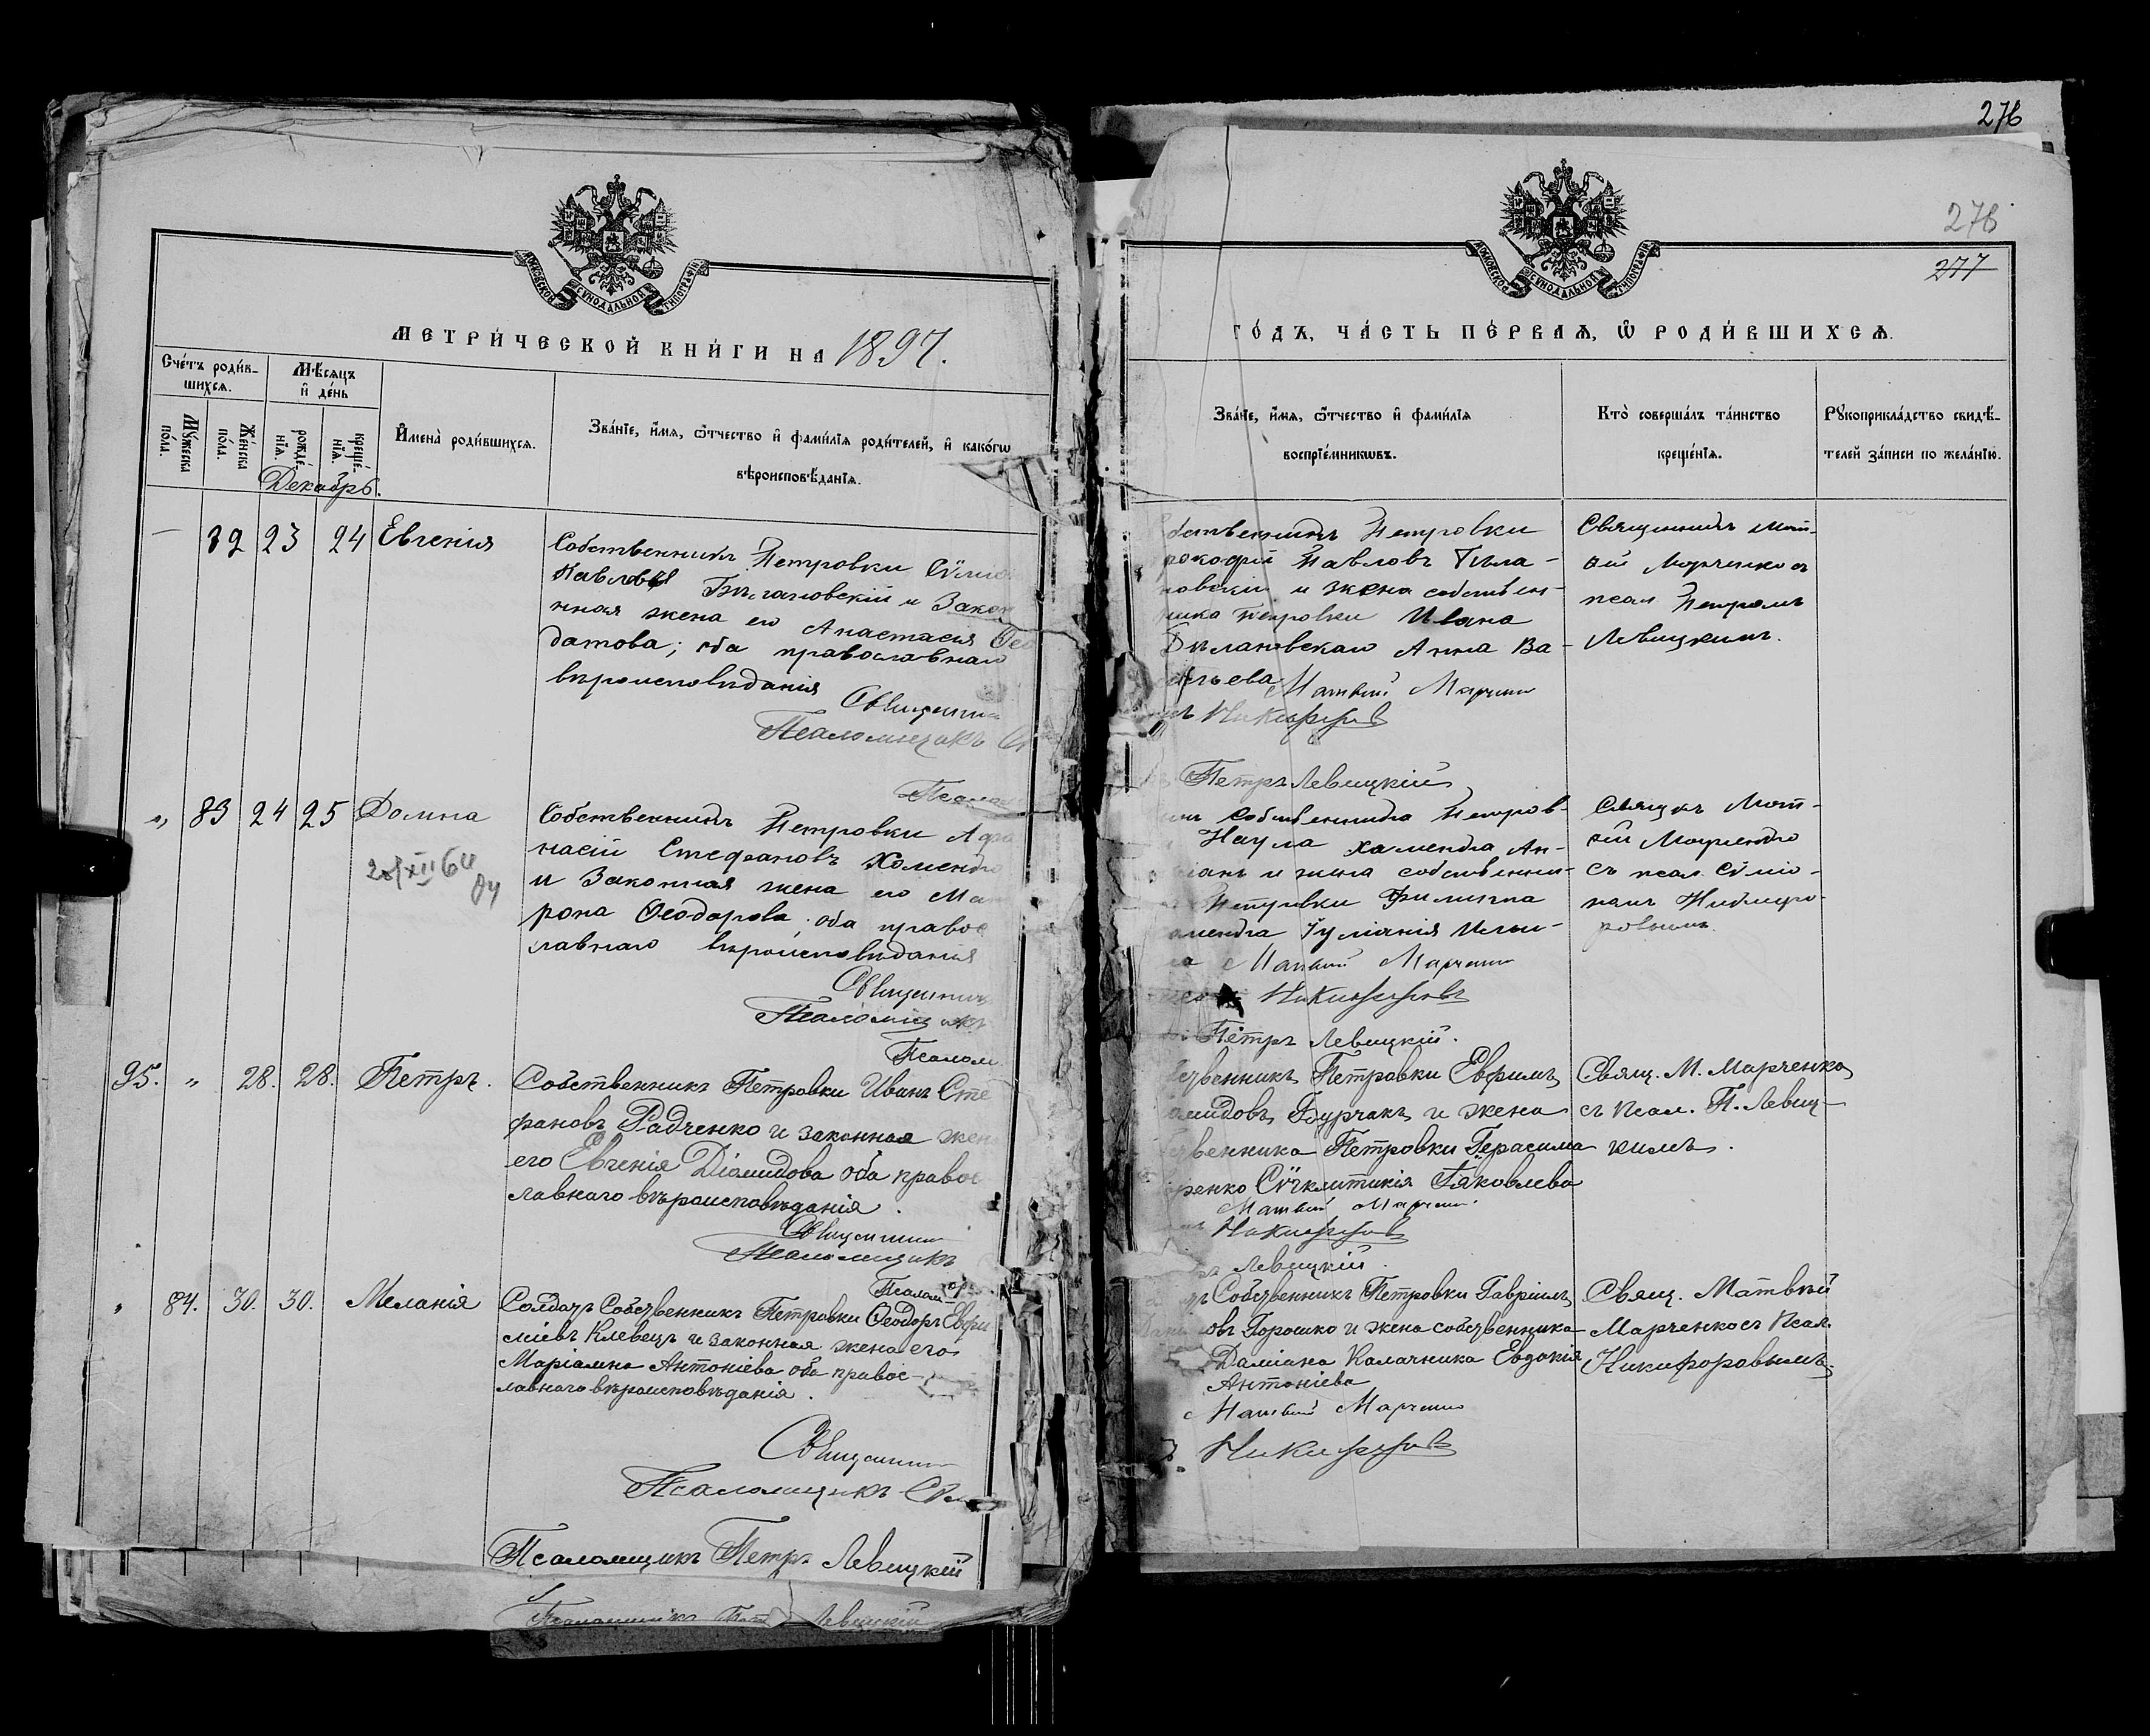 276
276
277
МОСКОВСКОЙ СѴНОДАЛЬНОЙ ТИПОГРАФІИ
МЕТРИ́ЧЕСКОЙ КНИ́ГИ НА 1897.
Сче́тъ роди́в-
шихсѧ.
Мѣ́сѧцъ
и҆ де́нь
Мꙋ́жеска
по́ла.
Же́нска
по́ла.
рожде́-
нїѧ.
креще́-
нїѧ.
И҆мена̀ роди́вшихсѧ.
Зва́нїе, и҆́мѧ, ѻ҆́тчество и҆ фами́лїѧ роди́телей, и҆ како́гѡ
вѣроисповѣ́данїѧ.
Декабрь.
— 82 23 24 Евгенія
Собственникъ Петровки
Павловъ и Закон
ная жена его Анастасія
датова; оба православнаго
вѣроисповѣданія
Священни
Псаломщикъ
Псалом
„ 83 24 25 Домна
Собственникъ Петровки Афа
насій Стефановъ Хоменко
и Законная жена его Ма
рона Ѳеодорова; оба правос
лавнаго вѣроисповѣданія
Священникъ
Псаломщикъ
Псалом
95. „ 28. 28. Петръ.
Собственникъ Петровки Иванъ Сте
фановъ Радченко и законная жена
его Евгенія Діомидова оба правос
лавнаго вѣроисповѣданія.
Священник
Псаломщикъ
Псалом
„ 84. 30. 30. Меланія
Солдатъ Собственникъ Петровки Ѳеодоръ Евфи
міевъ Клевецъ и законная жена его
Маріамна Антоніева оба правос-
лавнаго вѣроисповѣданія.
Священник
Псаломщикъ
Псаломщикъ Петръ Левицкій
Псаломщикъ Петръ Левицкій
МОСКОВСКОЙ СѴНОДАЛЬНОЙ ТИПОГРАФІИ
ГО́ДЪ, ЧА́СТЬ ПЕ́РВАѦ, Ѡ҆ РОДИ́ВШИХСѦ.
Зва́нїе, и҆́мѧ, ѻ҆́тчество и҆ фами́лїѧ
воспрїе́мникѡвъ.
Кто̀ соверша́лъ та́инство
креще́нїѧ.
Рꙋкоприкла́дство свидѣ́-
телей за́писи по жела́нїю.
бственникъ Петровки
рокофій Павловъ Била-
новскій и жена собствен-
ника Петровки Ивана
Билановскаго Анна Ва-
ильева
Матвѣй Марченко
Никифоровъ
Петръ Левицкій
Священникъ Мат-
вѣй Марченко съ
псал Петромъ
Левицкимъ.
собственника Петров-
Наума Хоменка Ан-
и жена собственни-
Петровки Филиппа
оменка Іуліанія Ильи-
на Матвѣй Марченко
Никифоровъ
Петръ Левицкій.
Священкъ Мат-
вѣй Марченко
съ псал. Сѵмео-
номъ Никифо-
ровымъ
ственникъ Петровки Евфимъ
омидовъ Бурчакъ и жена
ственника Петровки Герасима
ренко Сѵнклитикія Іаковлева
Матвѣй Марченко
Никифоровъ
Левицкій.
Свящ. М. Марченко
съ псал. П. Левиц-
кимъ.
Собственникъ Петровки Гавріилъ
овъ Горошко и жена собственника
Даміана Калачника Евдокія
Антоніева
Матвѣй Марченко
Никифоровъ
Свящ. Матвѣй
Марченко съ псал.
Никифоровымъ.